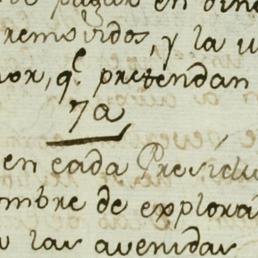 de pagar en din
removidos, y la u
or, q.e pretendan
7a
en cada Presidi
mbre de explora
las avenidas